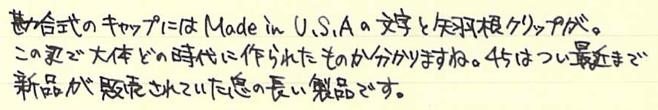 勘合式のキャップには Made in U.S.A の文字と矢羽根クリップが。
この辺で大体どの時代に作られたものか分かりますね。45はつい最近まで
新品が販売されていた息の長い製品です。